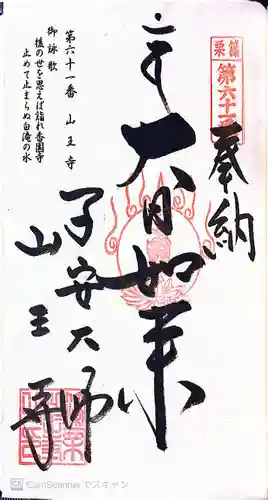 第六十一番 山王寺
御詠歌
後の世を思えば詣れ香園寺
止めて止まらぬ白滝の水
奉納
大日如来
子安大師
山王寺
第六十一番
CamScanner でスキャン